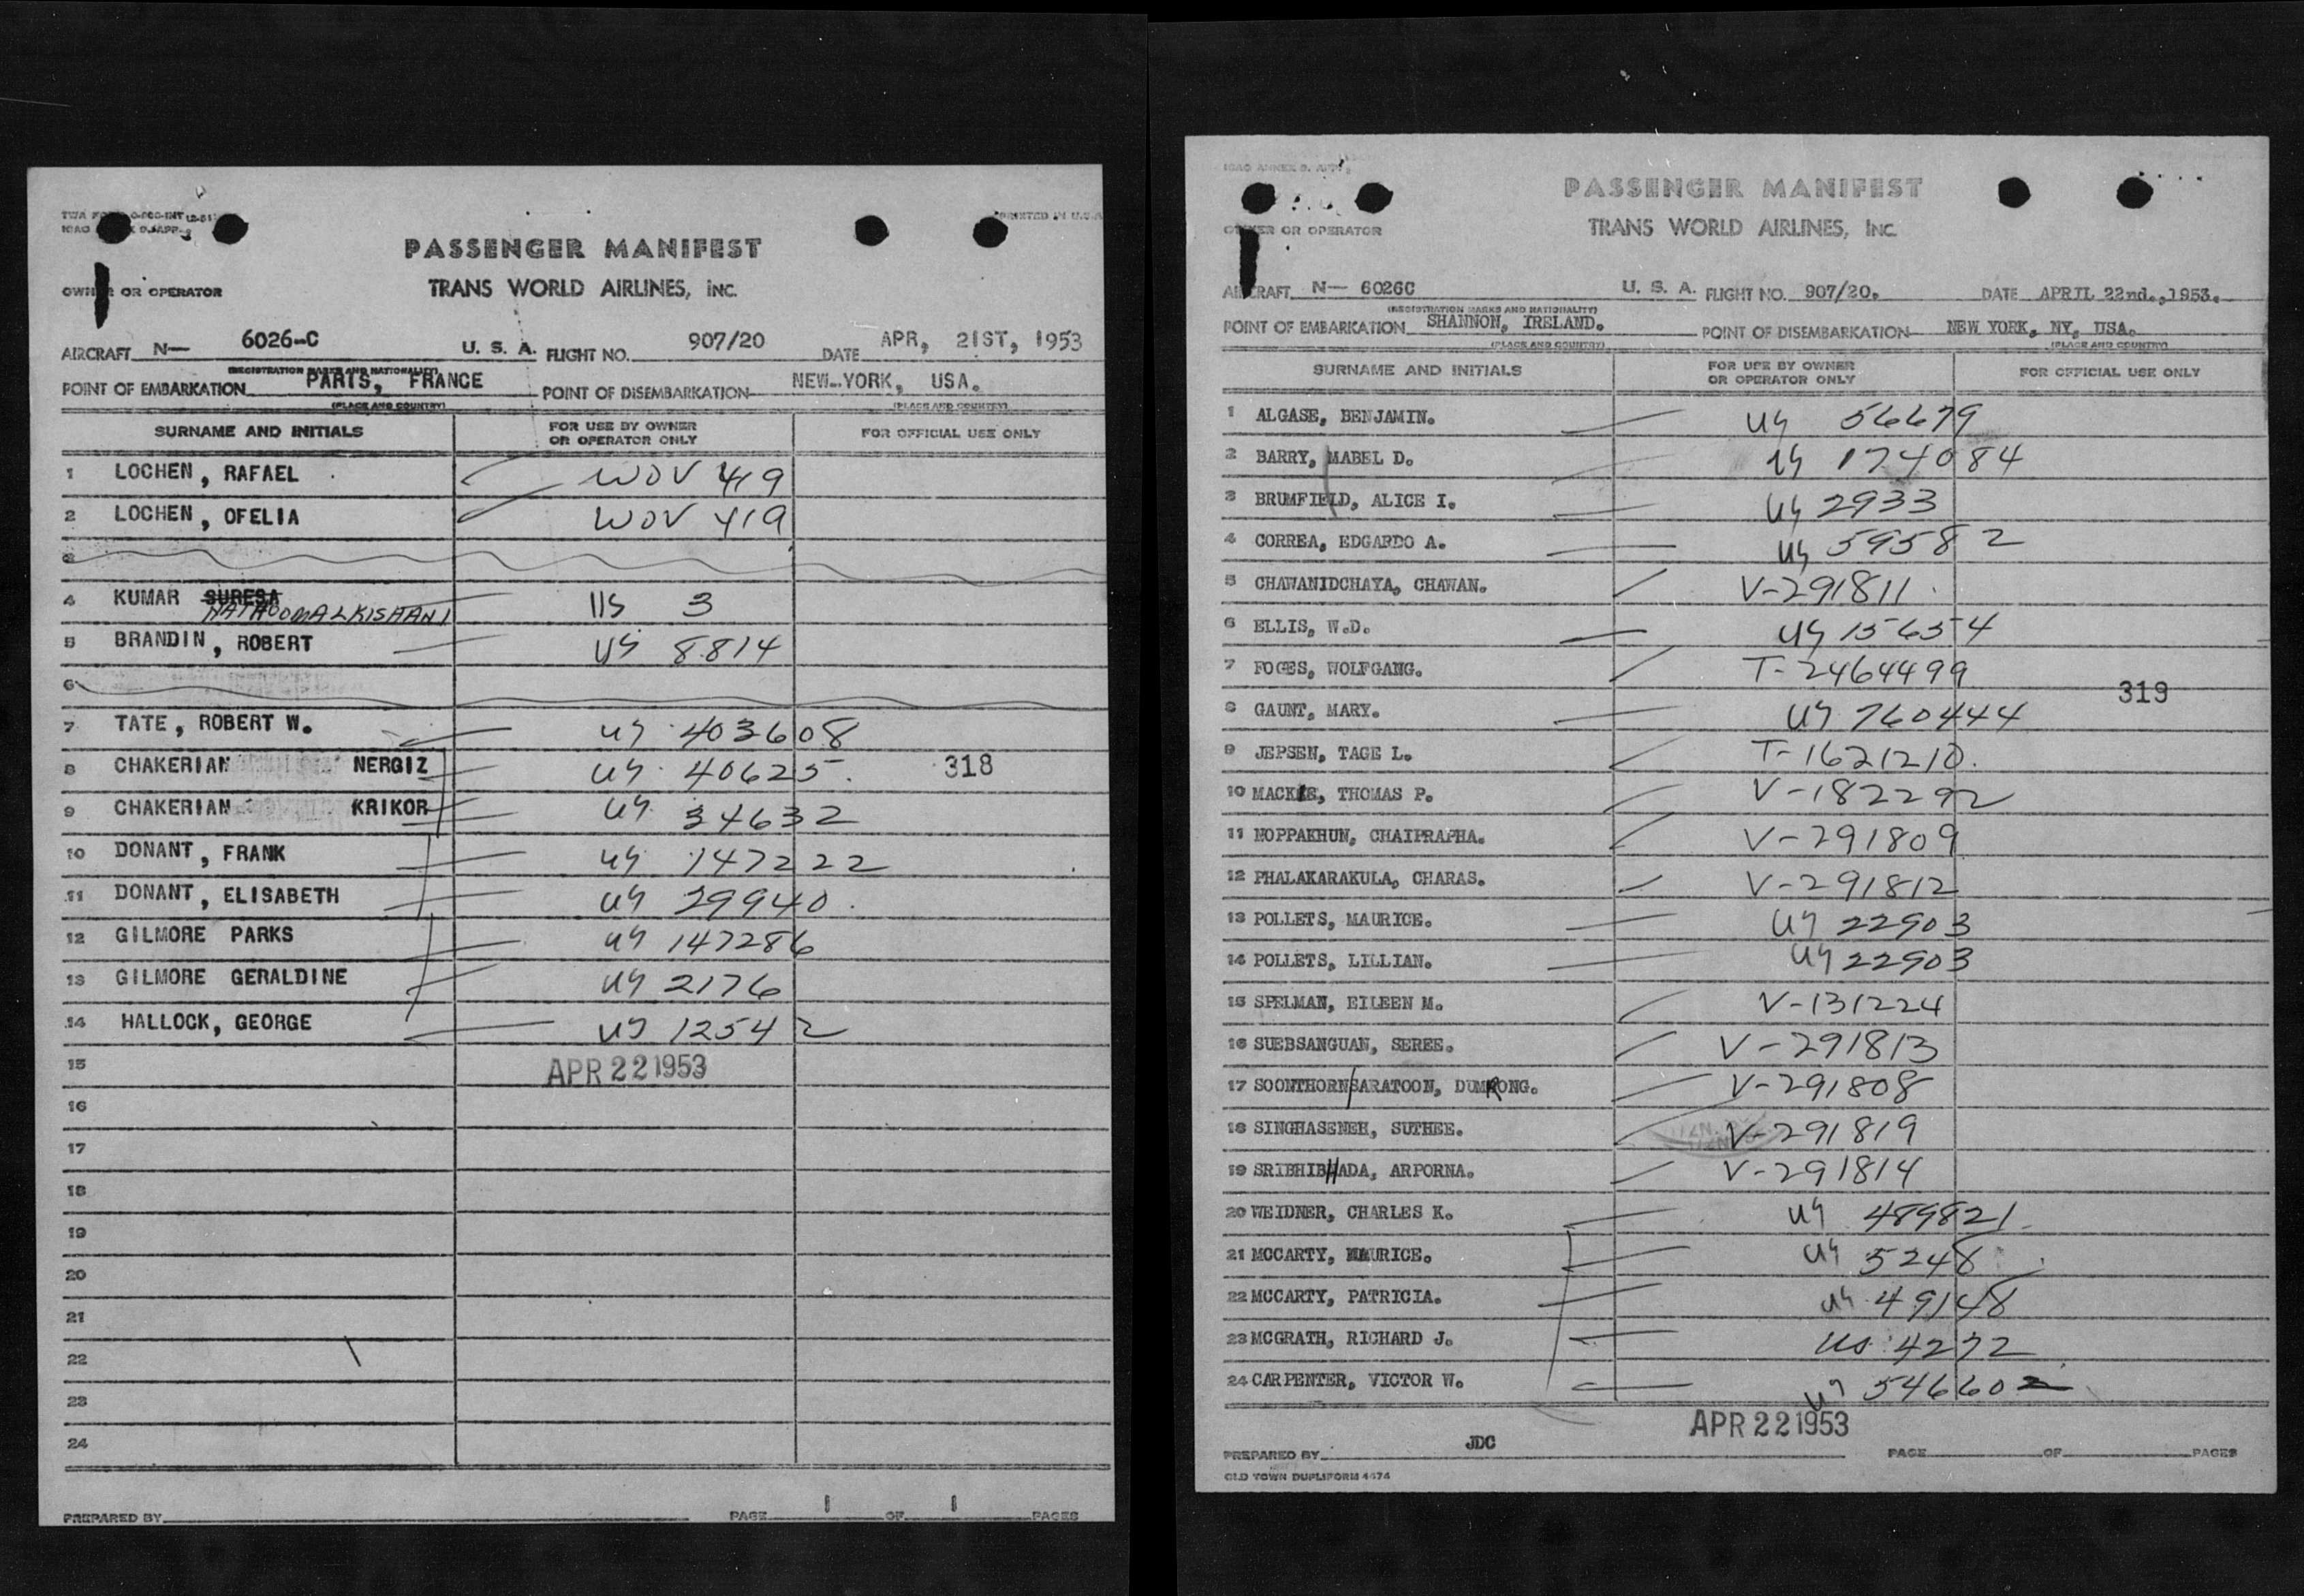 PASSENGER MANIFEST
TRANS WORLD AIRLINES, INC.
OWNER OR OPERATOR
AIRCRAFT N— 6026-C U. S. A. FLIGHT NO. 907/20 DATE APR, 21ST, 1953
(REGISTRATION MARKS AND NATIONALITY)
POINT OF EMBARKATION PARIS, FRANCE POINT OF DISEMBARKATION NEW-YORK, USA.
(PLACE AND COUNTRY) (PLACE AND COUNTRY)
SURNAME AND INITIALS FOR USE BY OWNER OR OPERATOR ONLY FOR OFFICIAL USE ONLY
1 LOCHEN, RAFAEL WOV 419
2 LOCHEN, OFELIA WOV 419
3
4 KUMAR SURESA NATHOOMALKISHANI US 3
5 BRANDIN, ROBERT US 8814
6
7 TATE, ROBERT W. US 403608
8 CHAKERIAN NERGIZ US 40625 318
9 CHAKERIAN KRIKOR US 34632
10 DONANT, FRANK US 147222
11 DONANT, ELISABETH US 29940
12 GILMORE PARKS US 147286
13 GILMORE GERALDINE US 2176
14 HALLOCK, GEORGE US 12542
15 APR 22 1953
16
17
18
19
20
21
22
23
24
PREPARED BY PAGE 1 OF 1 PAGES
PASSENGER MANIFEST
TRANS WORLD AIRLINES, INC.
OWNER OR OPERATOR
AIRCRAFT N— 6026C U. S. A. FLIGHT NO. 907/20. DATE APRIL 22nd.,1953.
(REGISTRATION MARKS AND NATIONALITY)
POINT OF EMBARKATION SHANNON, IRELAND. POINT OF DISEMBARKATION NEW YORK, NY, USA.
(PLACE AND COUNTRY) (PLACE AND COUNTRY)
SURNAME AND INITIALS FOR USE BY OWNER OR OPERATOR ONLY FOR OFFICIAL USE ONLY
1 ALGASE, BENJAMIN. US 56679
2 BARRY, MABEL D. US 174084
3 BRUMFIELD, ALICE I. US 2933
4 CORREA, EDGARDO A. US 59582
5 CHAWANIDCHAYA, CHAWAN. V-291811
6 ELLIS, W.D. US 15654
7 FOGES, WOLFGANG. T-2464499
319
8 GAUNT, MARY. US 760444
9 JEPSEN, TAGE L. T-1621210.
10 MACKIE, THOMAS P. V-182292
11 NOPPAKHUN, CHAIPRAPHA. V-291809
12 PHALAKARAKULA, CHARAS. V-291812
13 POLLETS, MAURICE. US 22903
14 POLLETS, LILLIAN. US 22903
15 SPELMAN, EILEEN M. V-131224
16 SUEBSANGUAN, SEREE. V-291813
17 SOONTHORNSARATOON, DUMRONG. V-291808
18 SINGHASENEH, SUTHEE. V-291819
19 SRIBHIBHADA, ARPORNA. V-291814
20 WEIDNER, CHARLES K. US 489821
21 MCCARTY, MAURICE. US 5248
22 MCCARTY, PATRICIA. US 49148
23 MCGRATH, RICHARD J. US 4272
24 CARPENTER, VICTOR W. US 546602
APR 22 1953
PREPARED BY JDC PAGE OF PAGES
OLD TOWN DUPLIFORM 4474